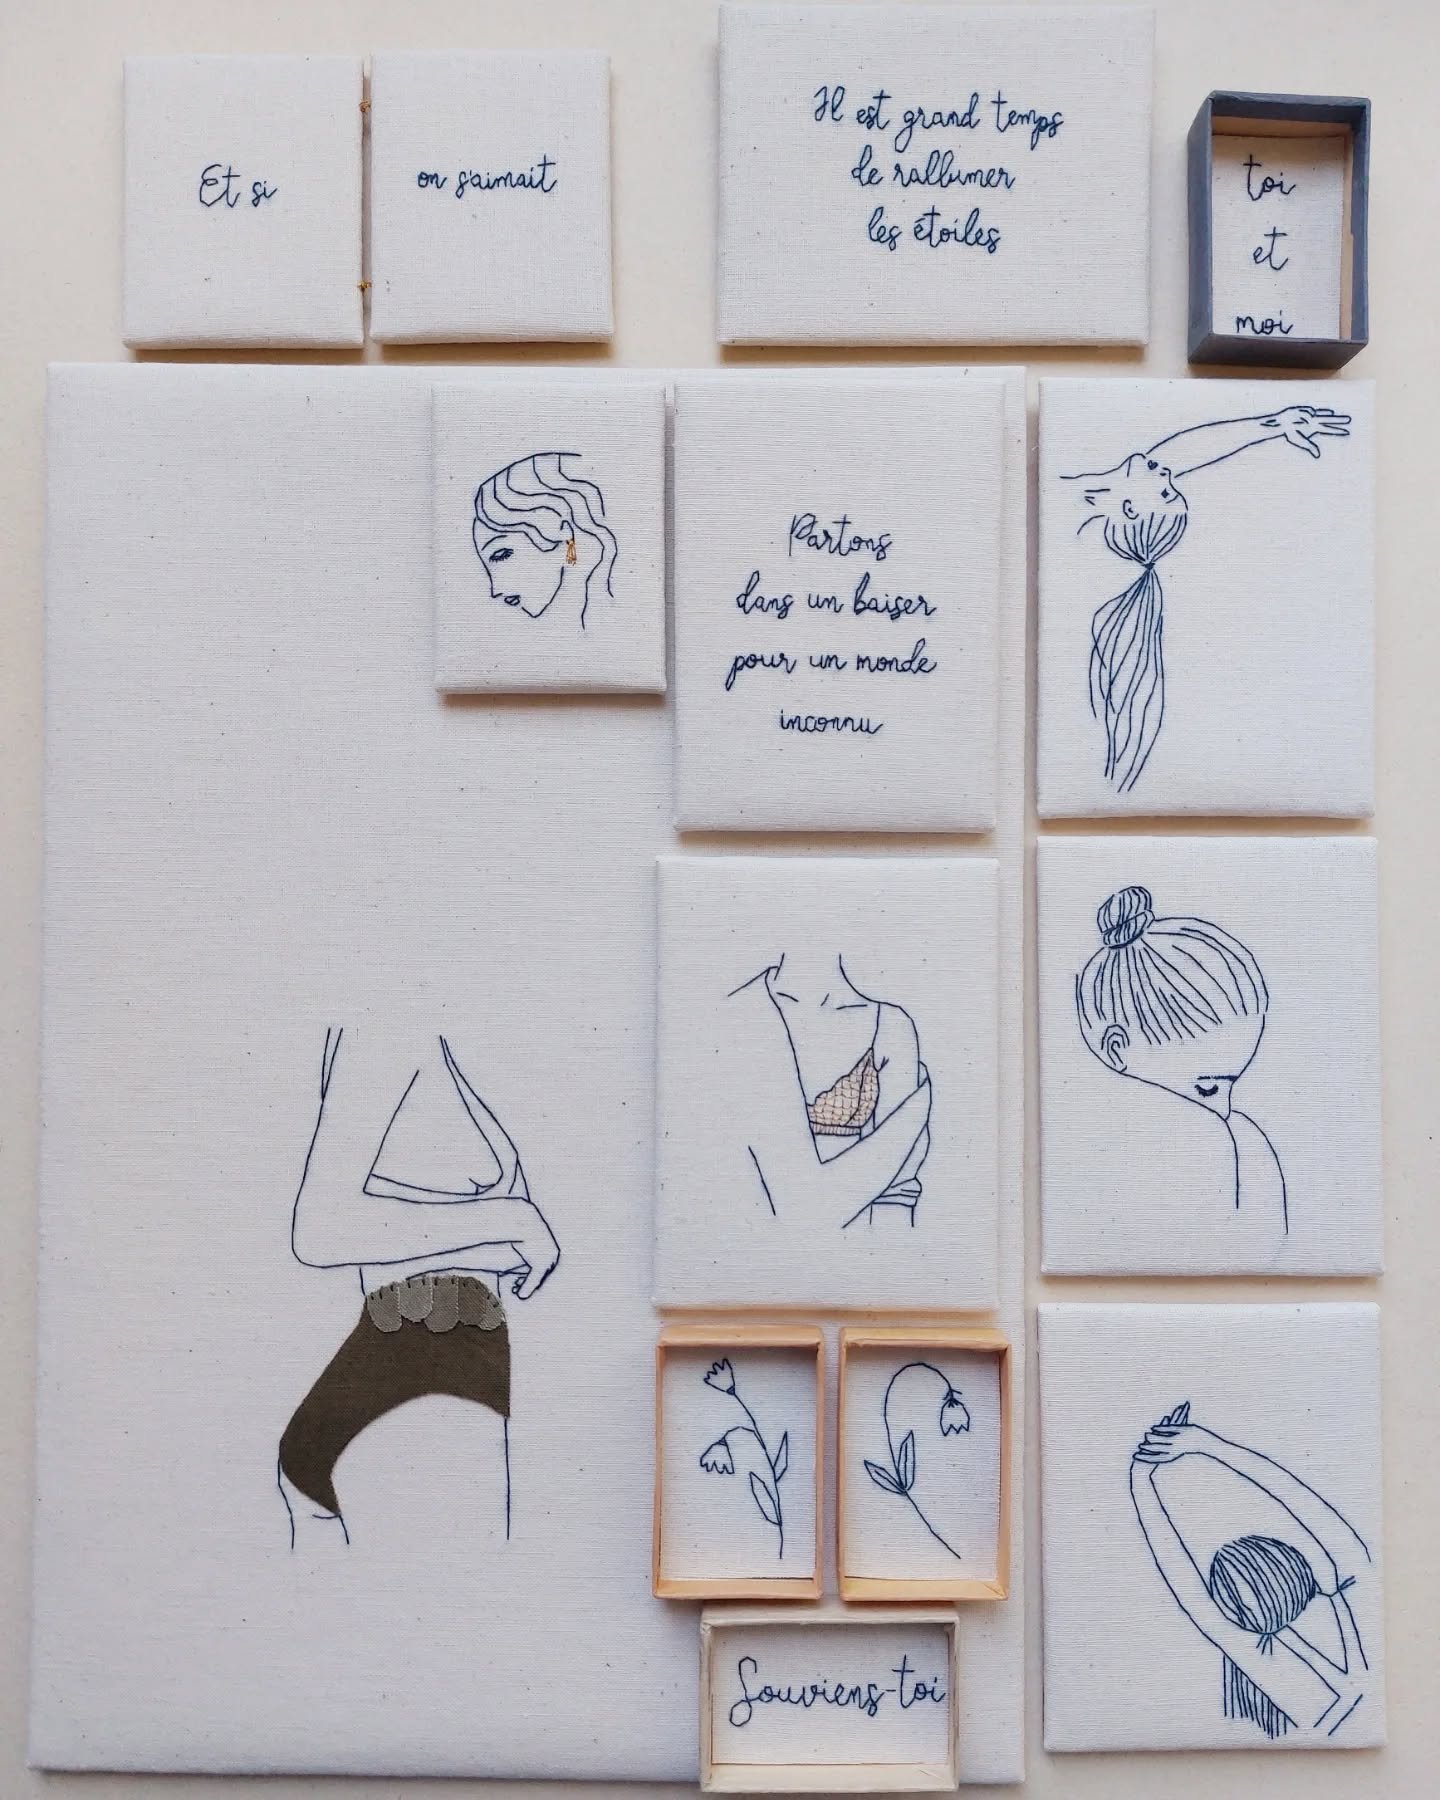 Et si
on s'aimait
Il est grand temps
de rallumer
les étoiles
toi
et
moi
Partons
dans un baiser
pour un monde
inconnu
Souviens-toi